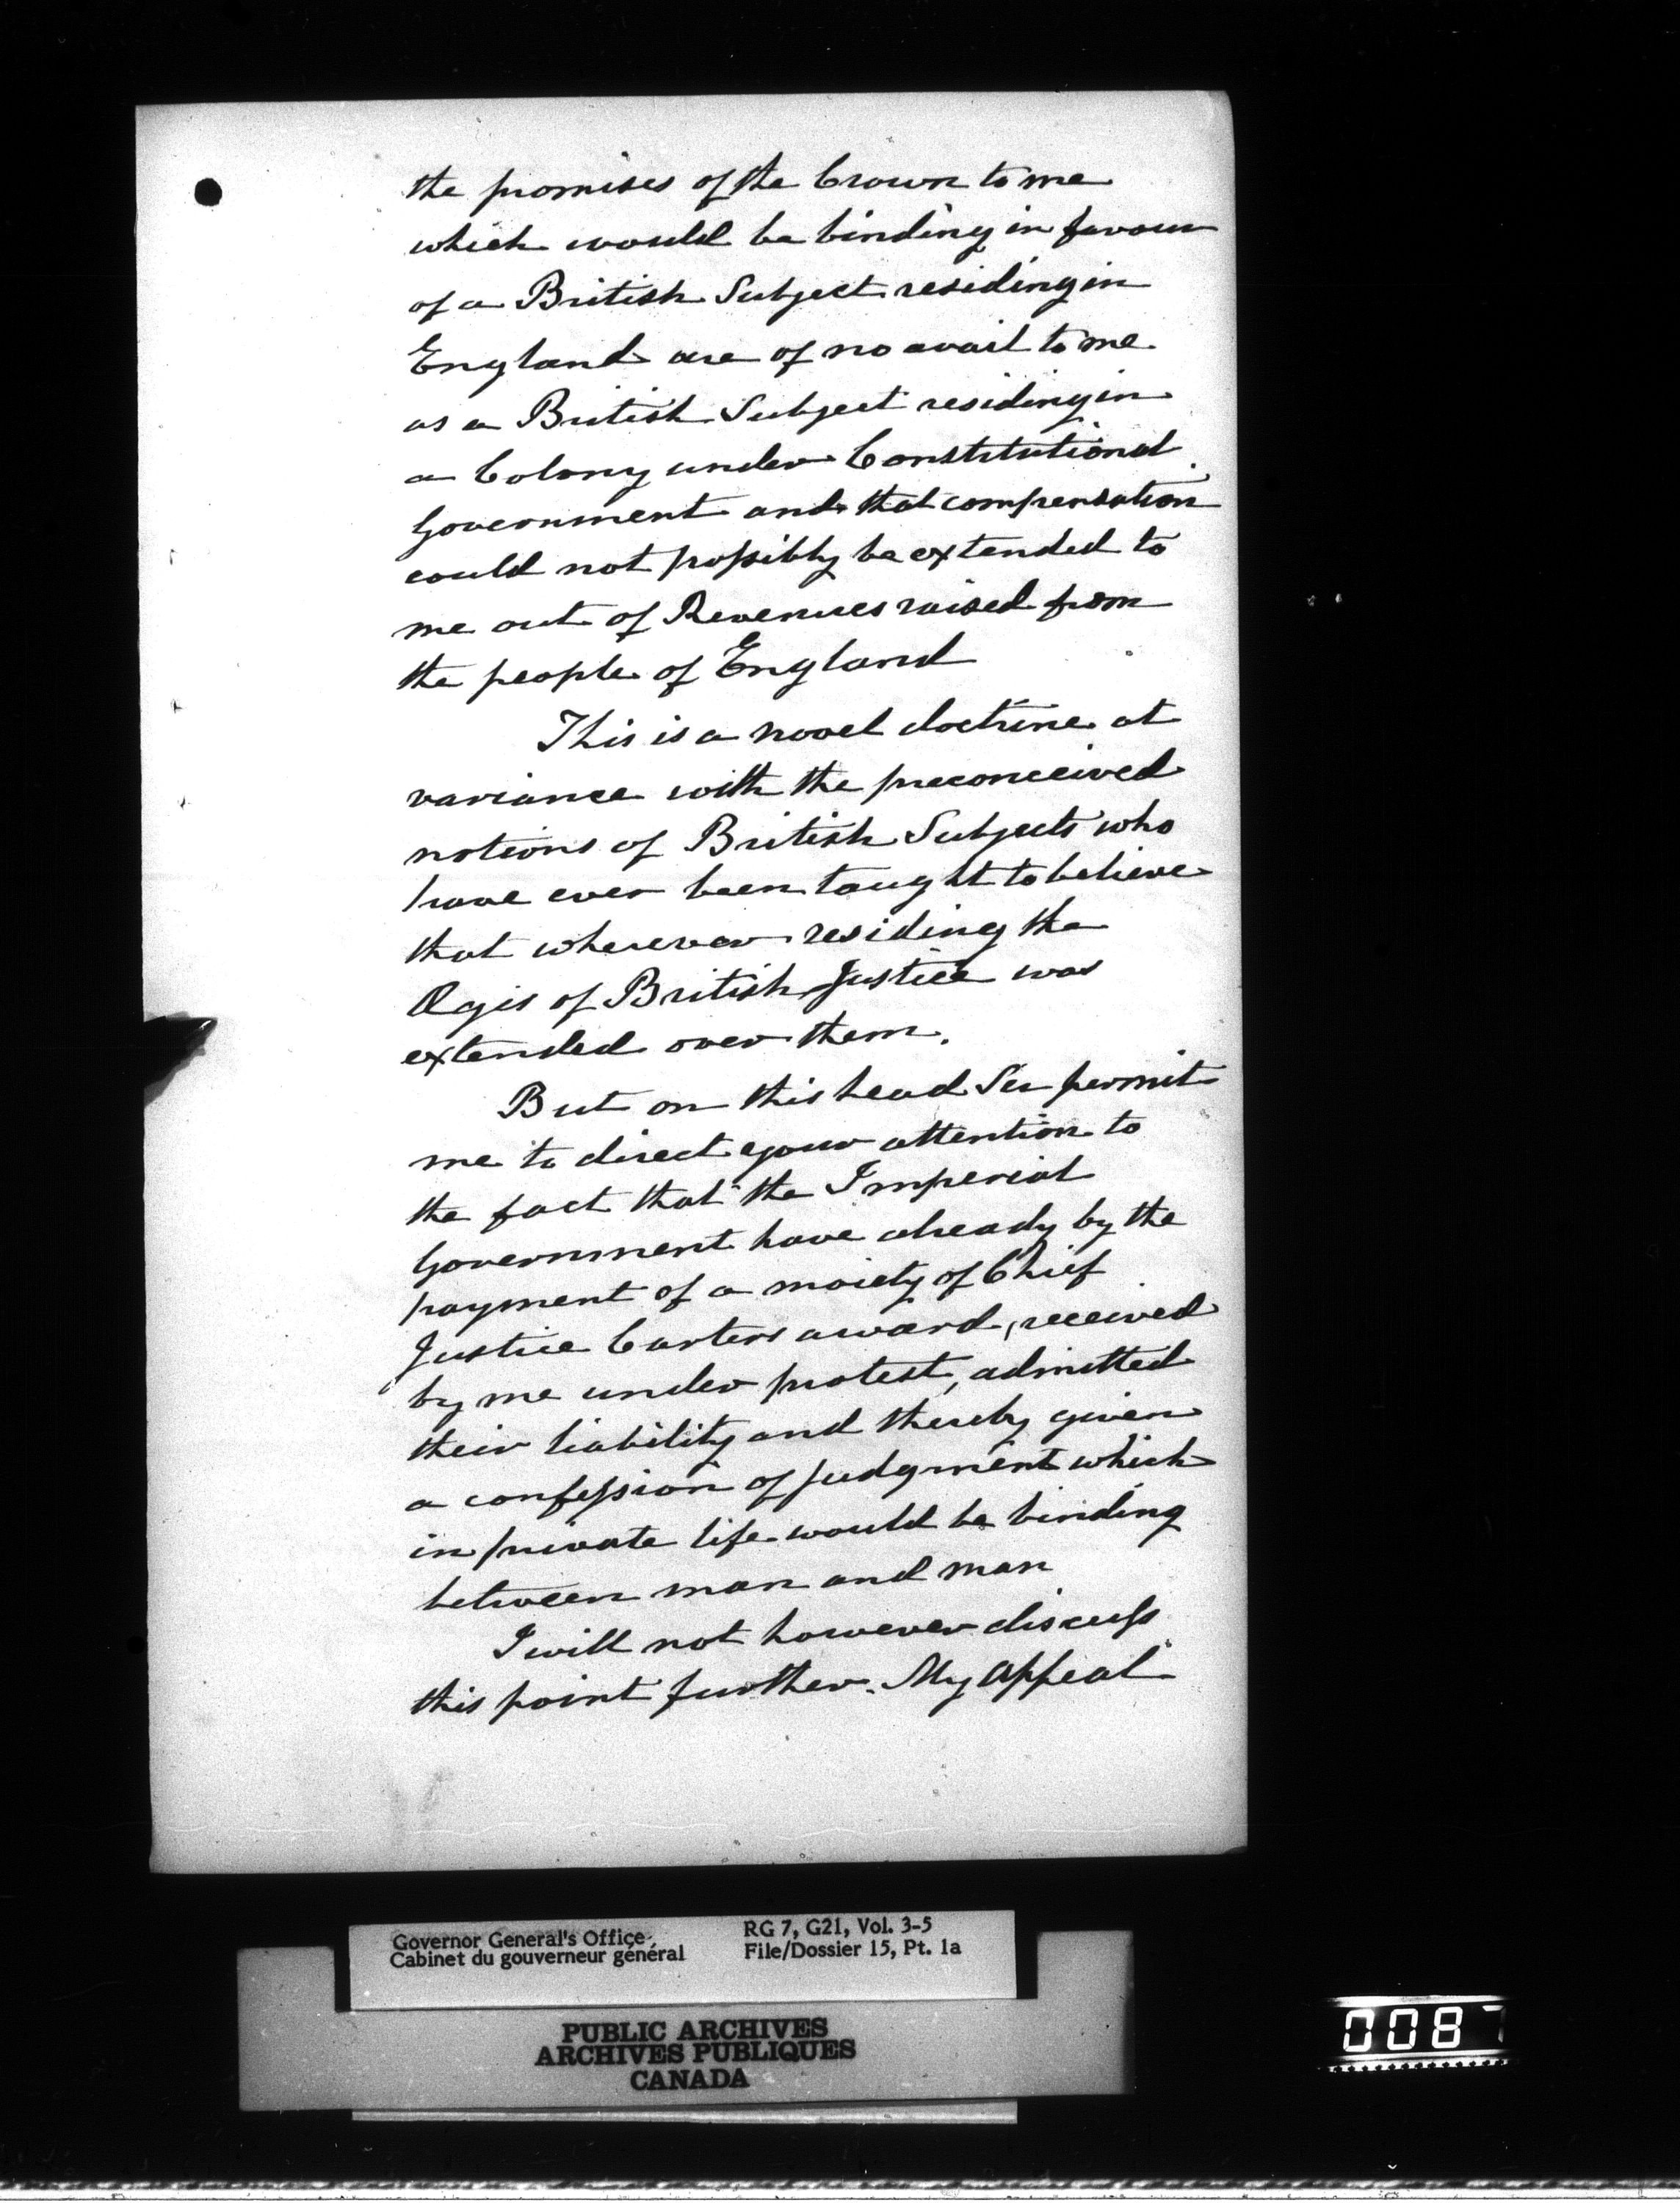 the promises of the Crown to me
which would be binding in favour
of a British Subject residing in
England are of no avail to me
as a British Subject residing in
a Colony under Constitutional
Government and that compensation
could not possibly be extended to
me out of Revenues raised from
the people of England
This is a novel doctrine at
variance with the preconceived
notions of British Subjects who
have ever been taught to believe
that wherever residing the
Ægis of British Justice was
extended over them.
But on this head Sir permit
me to direct your attention to
the fact that the Imperial
Government have already by the
payment of a moiety of Chief
Justice Carters award, received
by me under protest, admitted
their liability and thereby given
a confession of judgment which
in private life would be binding
between man and man
I will not however discuss
this point further. My Appeal
Governor General's Office
Cabinet du gouverneur général
RG 7, G21, Vol. 3-5
File/Dossier 15, Pt. 1a
PUBLIC ARCHIVES
ARCHIVES PUBLIQUES
CANADA
0087